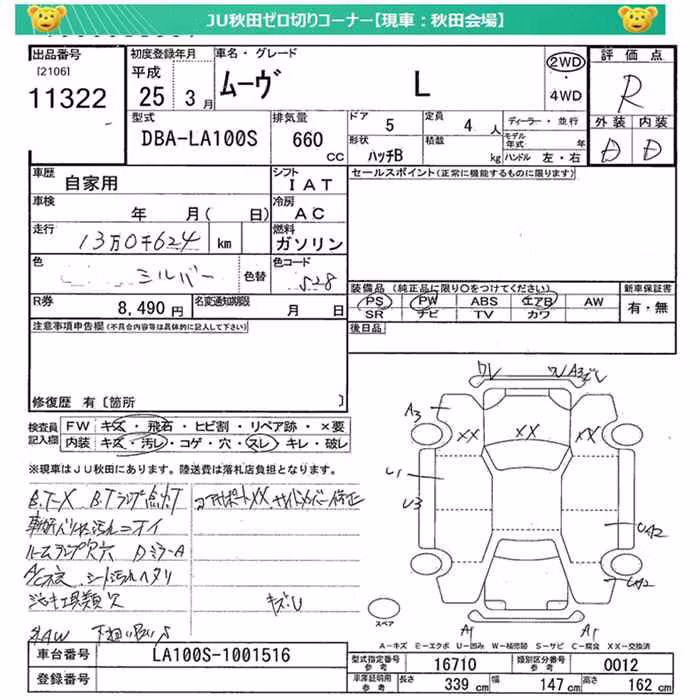 JU秋田ゼロ切りコーナー【現車：秋田会場】
出品番号
[2106]
11322
初度登録年月
平成
25 3月
車名・グレード
ムーヴ L
2WD
・
4WD
評価点
R
外装 内装
D D
型式
DBA-LA100S
排気量
660
CC
ドア
5
定員
4 人
形状
ハッチB
積載
kg
ディーラー・並行
モデル年式 年
ハンドル 左・右
車歴
自家用
シフト
IAT
車検
年 月( 日)
冷房
AC
走行
13万0千624 km
燃料
ガソリン
色
シルバー
色替
色コード
S28
R券
8,490 円
名変通知期限
月 日
セールスポイント(正常に機能するものに限ります)
装備品(純正品に限り〇をつけてください)
PS PW ABS エアB AW
SR ナビ TV カワ
新車保証書
有・無
後日品
注意事項申告欄(不具合内容等は具体的に記入して下さい)
修復歴 有〔箇所 〕
検査員
記入欄
FW キズ・飛石・ヒビ割・リペア跡・×要
内装 キズ・汚レ・コゲ・穴・スレ・キレ・破レ
※現車はJU秋田にあります。陸送費は落札店負担となります。
B.T-X B.Tランプ点灯
コアサポートXX サイドメンバー修正
ルームランプ欠 DミラーA
シート汚レヘタリ
キズU
A3
XX XX XX
U1
U3
UA2
UA2
A1 A1
スペア
A－キズ E－エクボ U－凹み W－補修跡 S－サビ C－腐食 XX－交換済
車台番号
LA100S-1001516
登録番号
型式指定番号
参考
16710
類別区分番号
参考
0012
車庫証明用
参考
長さ 339 cm 幅 147 cm 高さ 162 cm